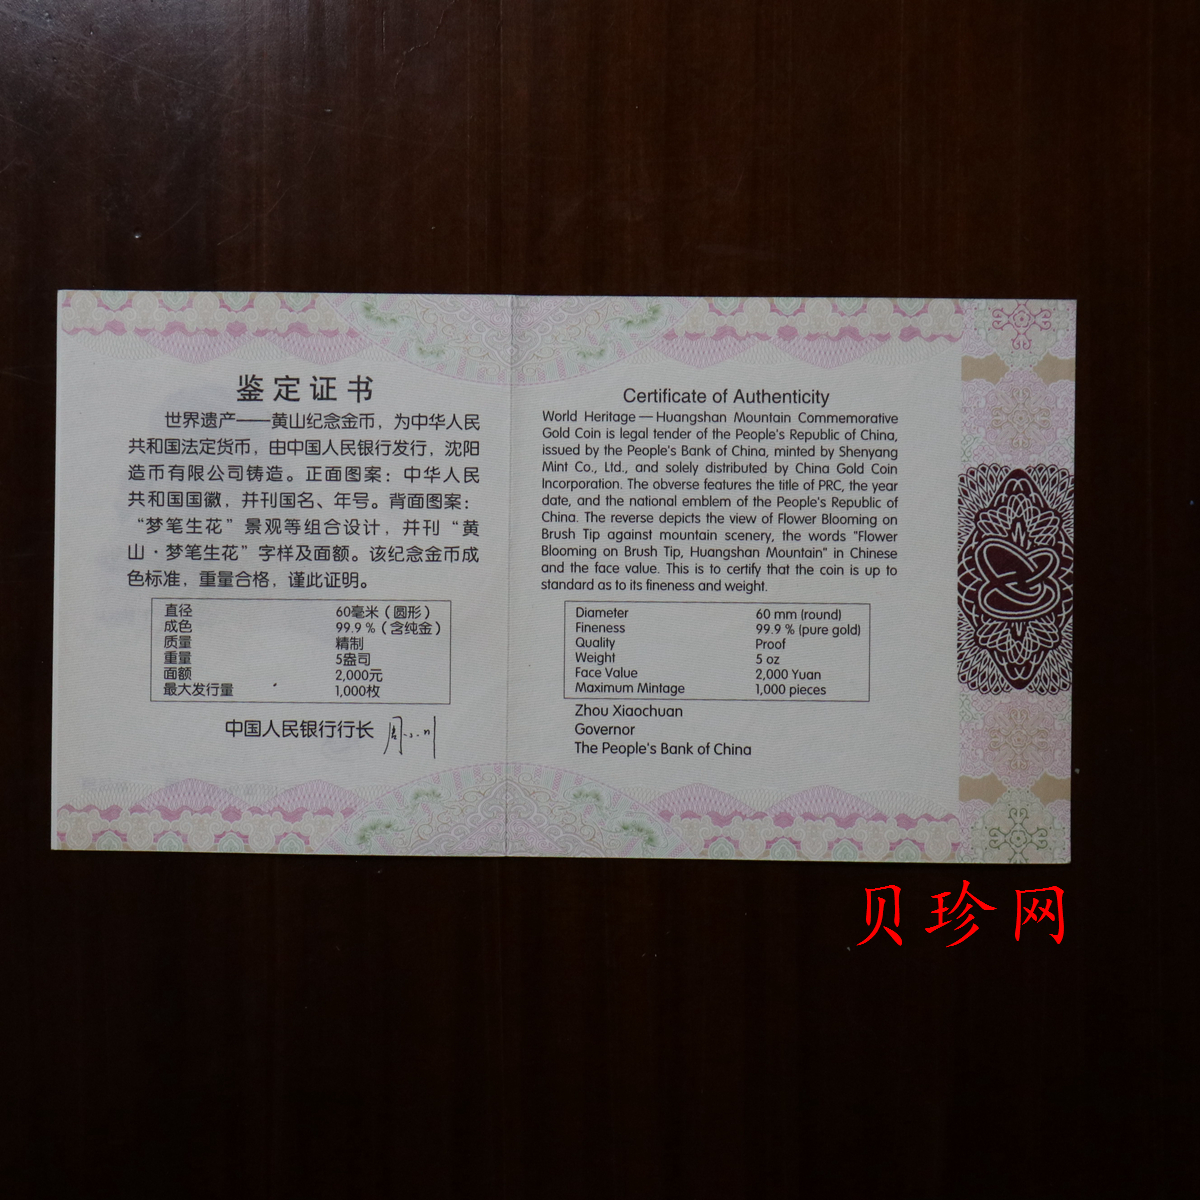 鉴定证书
世界遗产——黄山纪念金币，为中华人民
共和国法定货币，由中国人民银行发行，沈阳
造币有限公司铸造。正面图案：中华人民
共和国国徽，并刊国名、年号。背面图案：
“梦笔生花”景观等组合设计，并刊“黄
山·梦笔生花”字样及面额。该纪念金币成
色标准，重量合格，谨此证明。
直径 60毫米（圆形）
成色 99.9％（含纯金）
质量 精制
重量 5盎司
面额 2,000元
最大发行量 1,000枚
中国人民银行行长 周小川
Certificate of Authenticity
World Heritage — Huangshan Mountain Commemorative
Gold Coin is legal tender of the People's Republic of China,
issued by the People's Bank of China, minted by Shenyang
Mint Co., Ltd., and solely distributed by China Gold Coin
Incorporation. The obverse features the title of PRC, the year
date, and the national emblem of the People's Republic of
China. The reverse depicts the view of Flower Blooming on
Brush Tip against mountain scenery, the words "Flower
Blooming on Brush Tip, Huangshan Mountain" in Chinese
and the face value. This is to certify that the coin is up to
standard as to its fineness and weight.
Diameter 60 mm (round)
Fineness 99.9 % (pure gold)
Quality Proof
Weight 5 oz
Face Value 2,000 Yuan
Maximum Mintage 1,000 pieces
Zhou Xiaochuan
Governor
The People's Bank of China
贝珍网